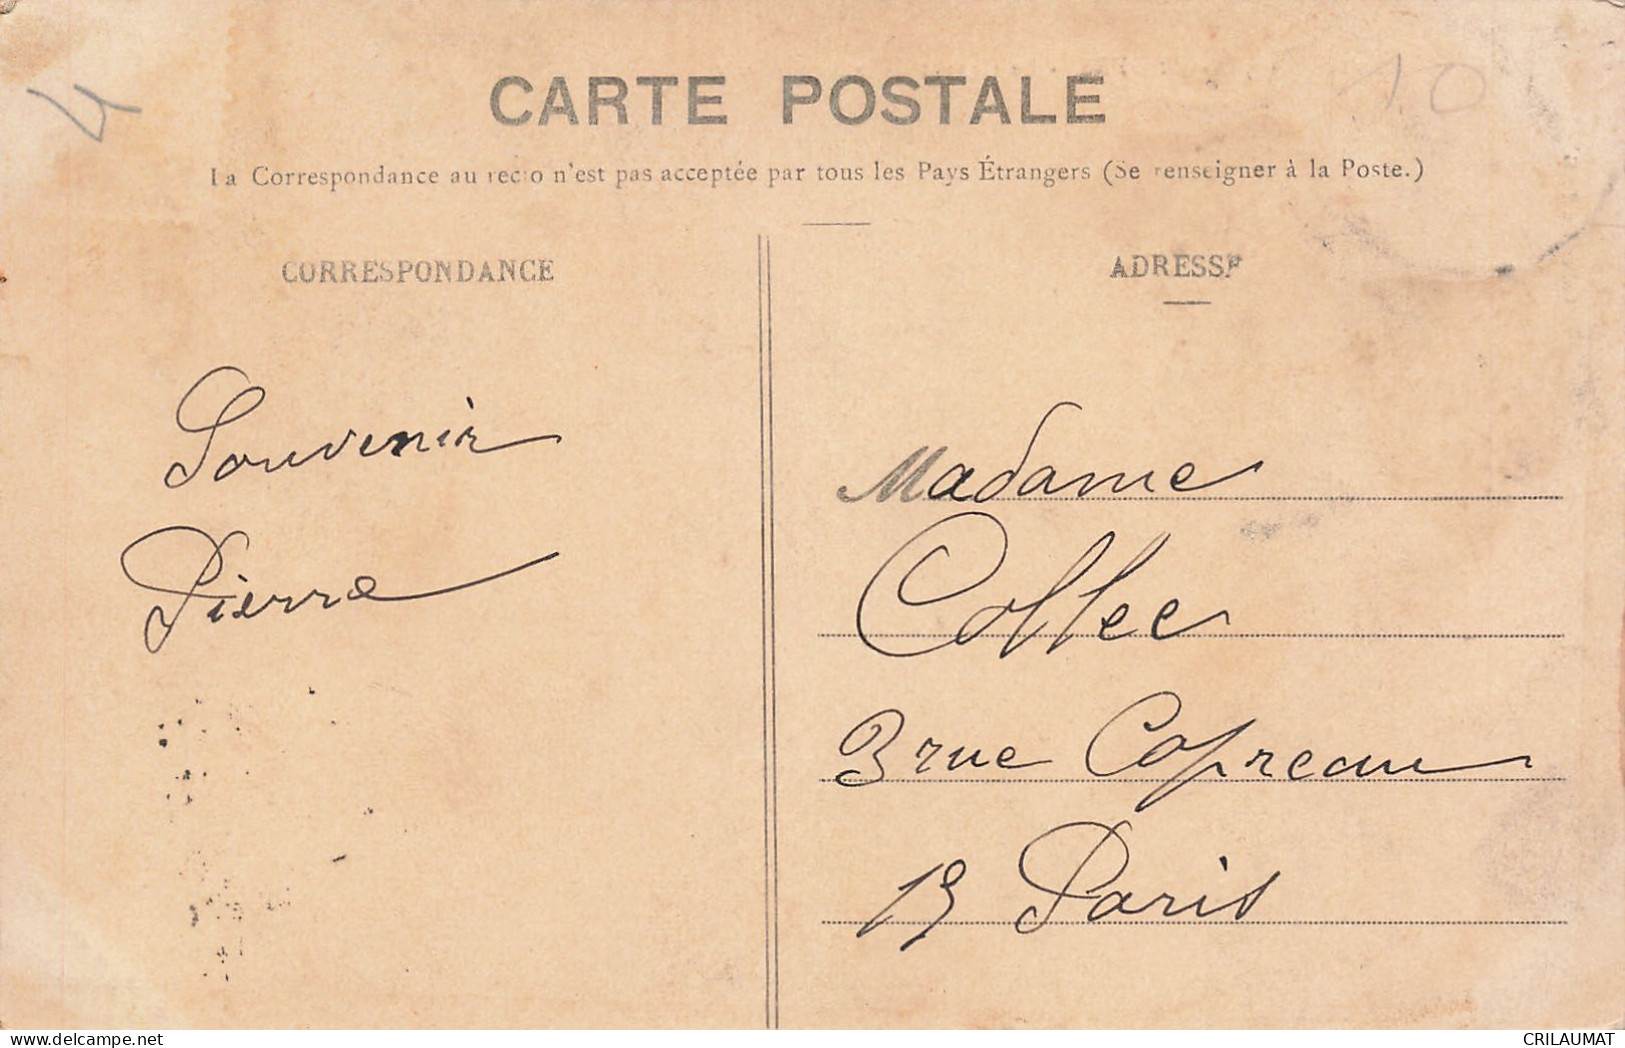 4
10
CARTE POSTALE
La Correspondance au recto n'est pas acceptée par tous les Pays Étrangers (Se renseigner à la Poste.)
CORRESPONDANCE
Souvenir
Pierre
ADRESSE
Madame
Collee
3 rue Copreau
15 Paris
delcampe.net
CRILAUMAT